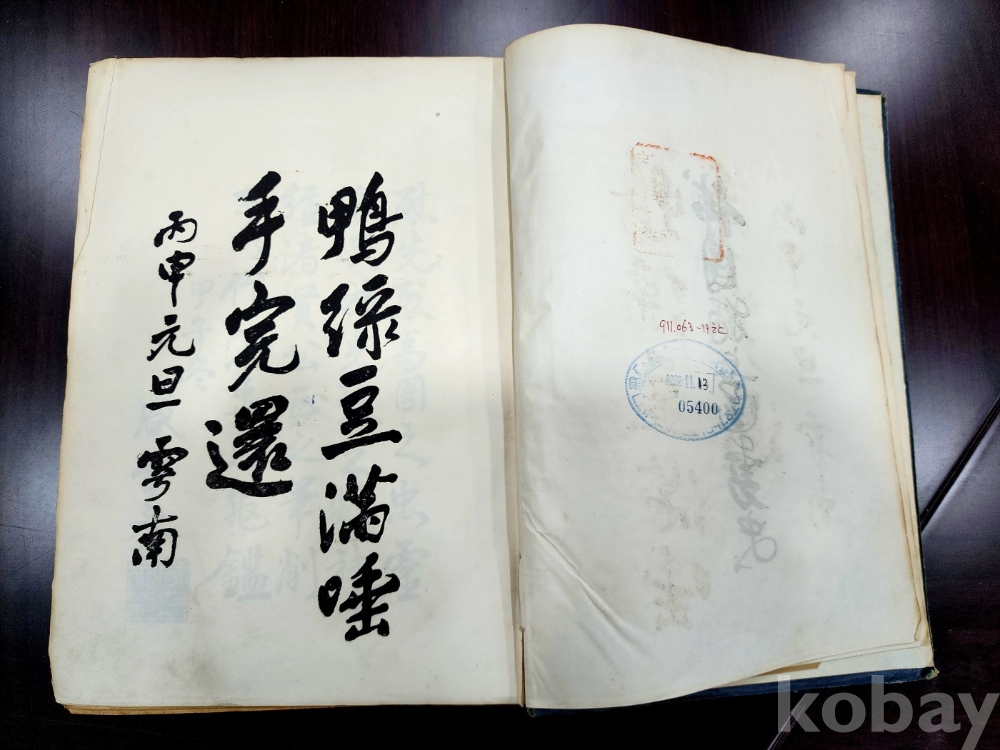 鴨綠豆滿唾
手完還
丙申元旦 雩南
911.063-
11.13
05400
kobay